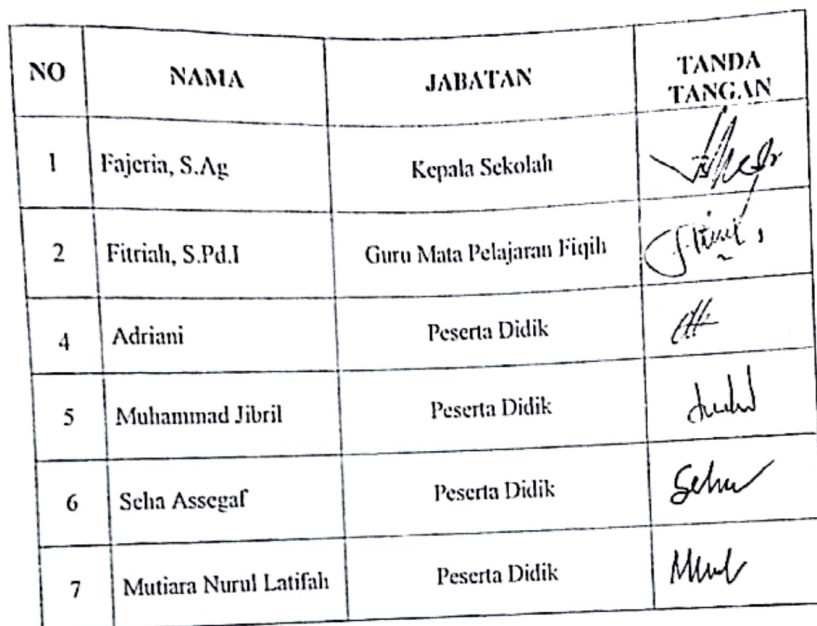 NO NAMA JABATAN TANDA TANGAN
1 Fajeria, S.Ag Kepala Sekolah
2 Fitriah, S.Pd.I Guru Mata Pelajaran Fiqih
4 Adriani Peserta Didik
5 Muhammad Jibril Peserta Didik
6 Seha Assegaf Peserta Didik
7 Mutiara Nurul Latifah Peserta Didik